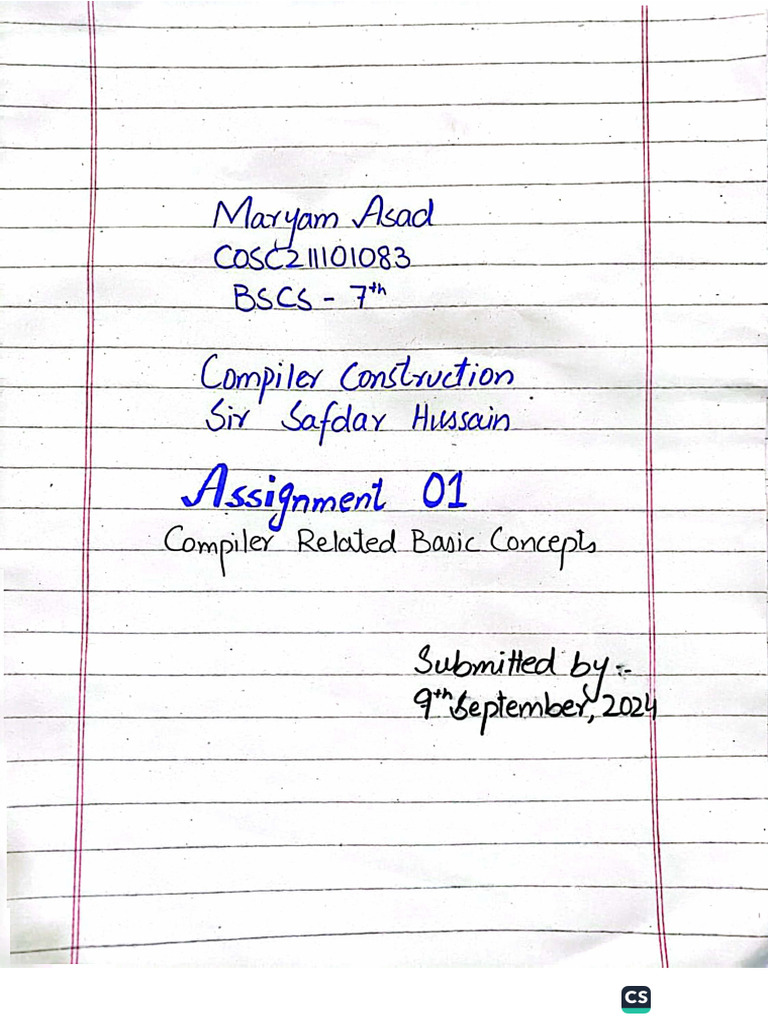 Maryam Asad
COSC211101083
BSCS - 7th
Compiler Construction
Sir Safdar Hussain
Assignment 01
Compiler Related Basic Concepts
Submitted by :-
9th September, 2024
CS